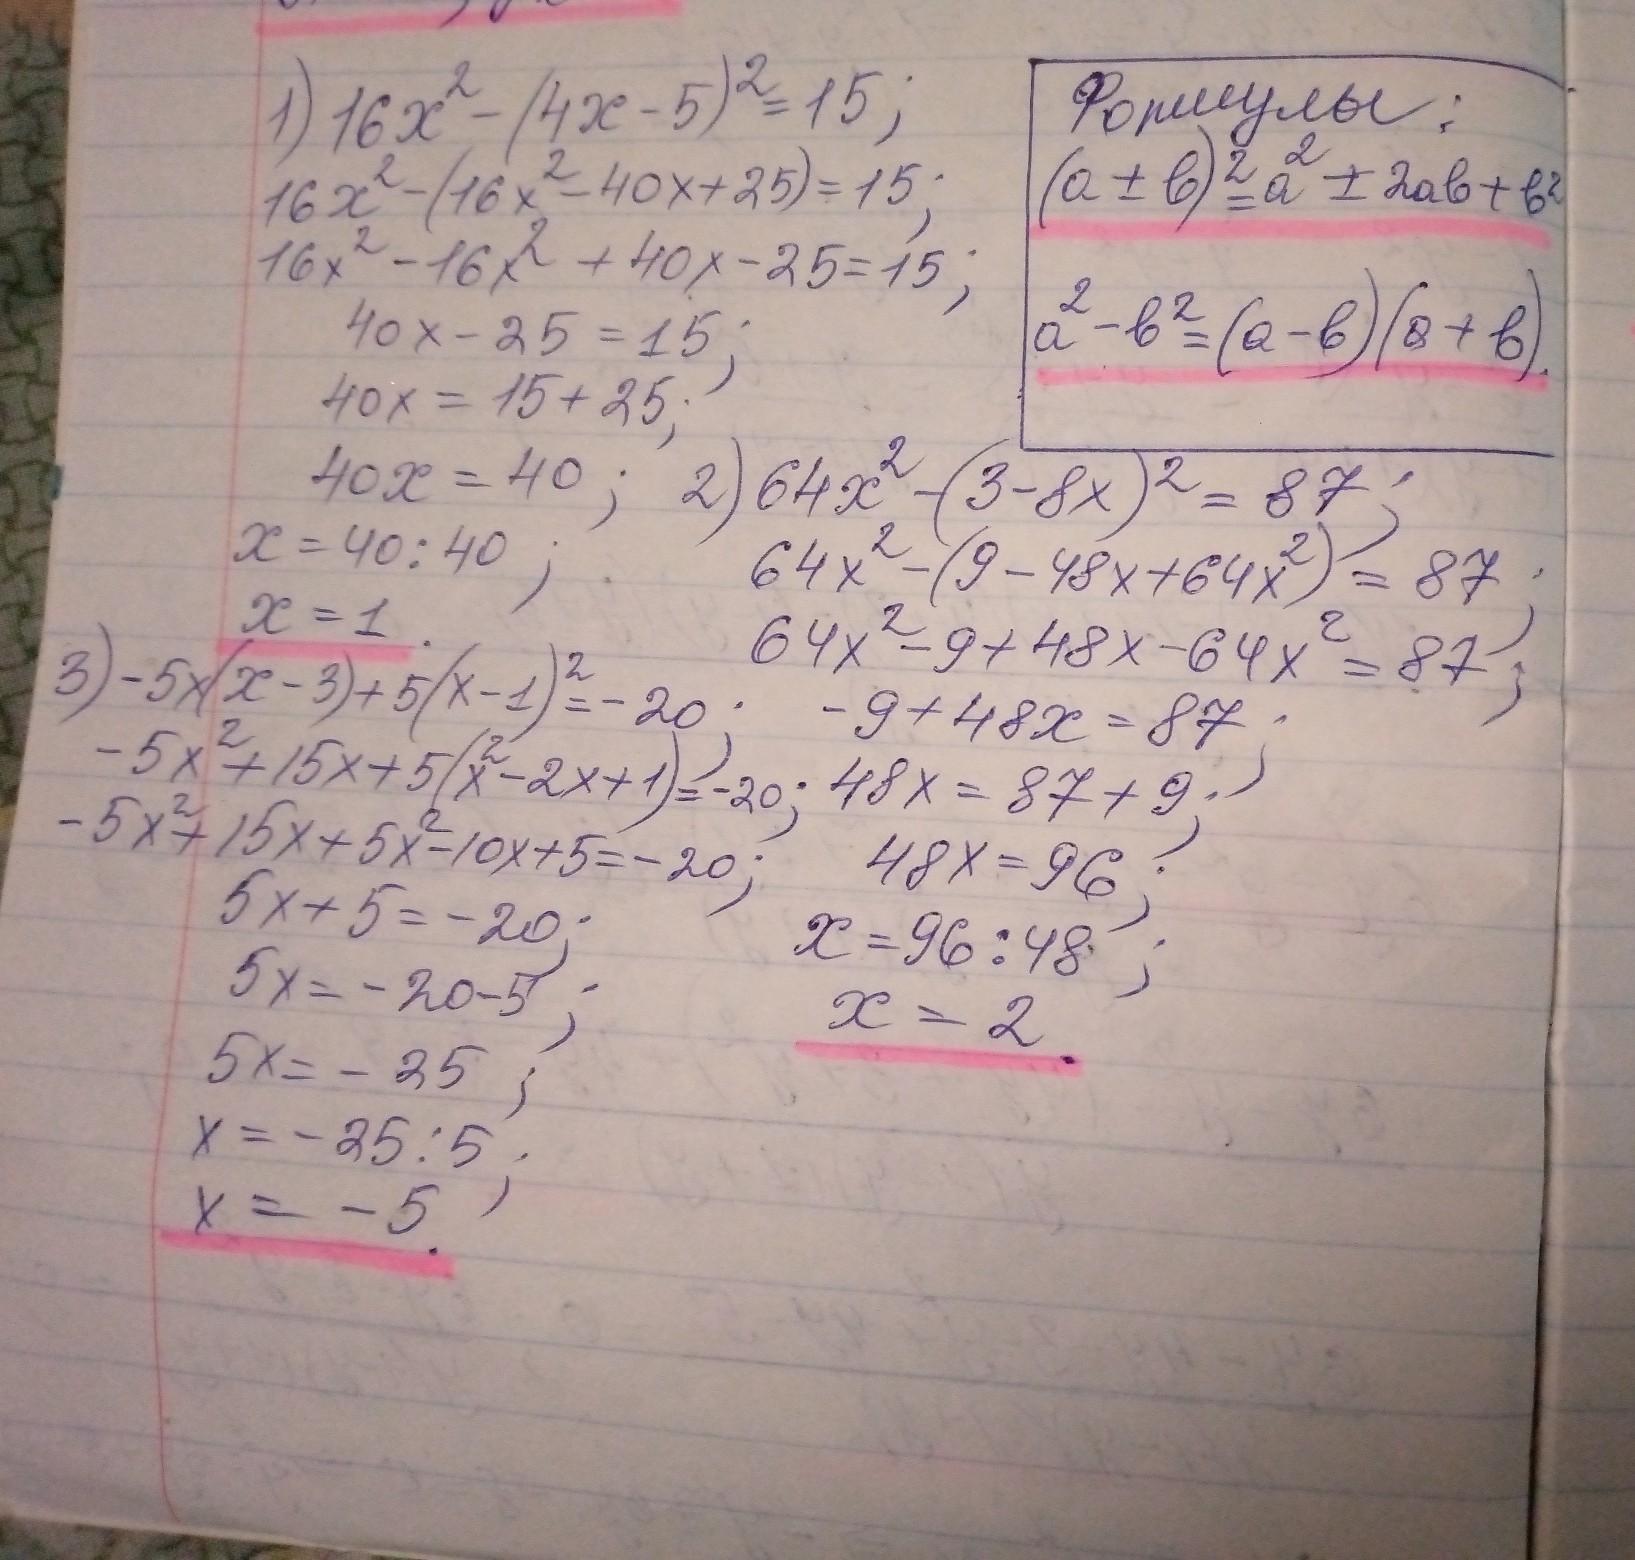 1) 16x² - (4x - 5)² = 15;
16x² - (16x² - 40x + 25) = 15;
16x² - 16x² + 40x - 25 = 15;
40x - 25 = 15;
40x = 15 + 25;
40x = 40;
x = 40 : 40;
x = 1.
Формулы:
(a ± b)² = a² ± 2ab + b²
a² - b² = (a - b)(a + b).
2) 64x² - (3 - 8x)² = 87;
64x² - (9 - 48x + 64x²) = 87;
64x² - 9 + 48x - 64x² = 87;
-9 + 48x = 87;
48x = 87 + 9;
48x = 96;
x = 96 : 48;
x = 2.
3) -5x(x - 3) + 5(x - 1)² = -20;
-5x² + 15x + 5(x² - 2x + 1) = -20;
-5x² + 15x + 5x² - 10x + 5 = -20;
5x + 5 = -20;
5x = -20 - 5;
5x = -25;
x = -25 : 5;
x = -5.